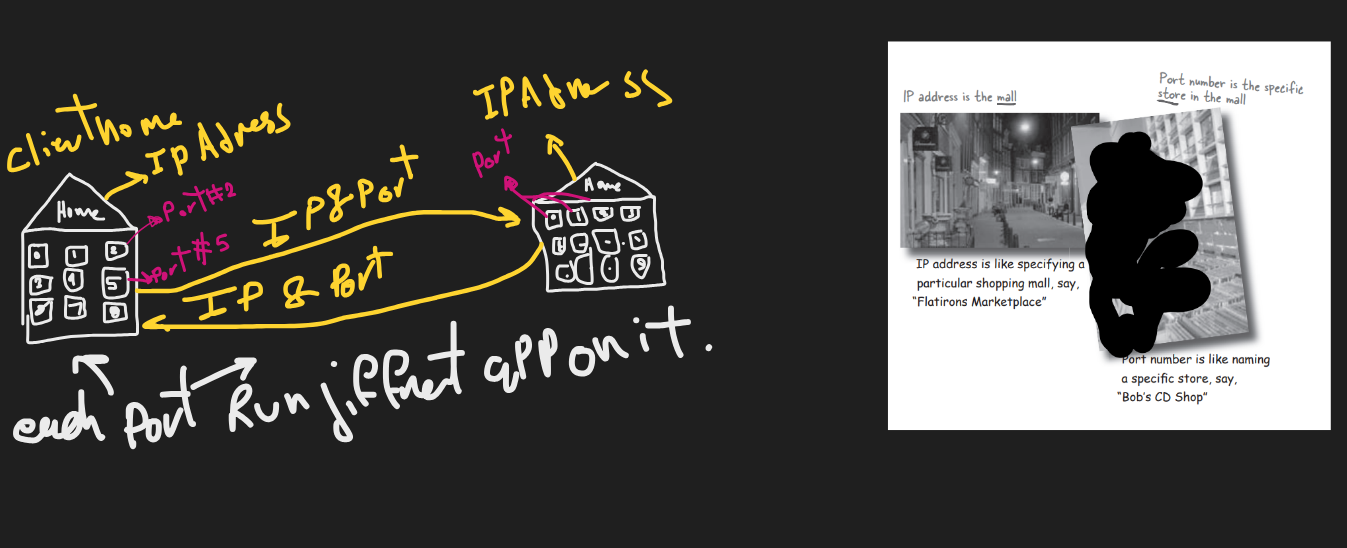 Client home
IP Adress
Home
Port#2
Port#5
0 1 2
3 4 5
7 8
IP & Port
IP & Port
IP Adress
Port
Home
each Port → Run jiffret app on it.
IP address is the mall
Port number is the specific
store in the mall
IP address is like specifying a
particular shopping mall, say,
“Flatirons Marketplace”
Port number is like naming
a specific store, say,
“Bob's CD Shop”